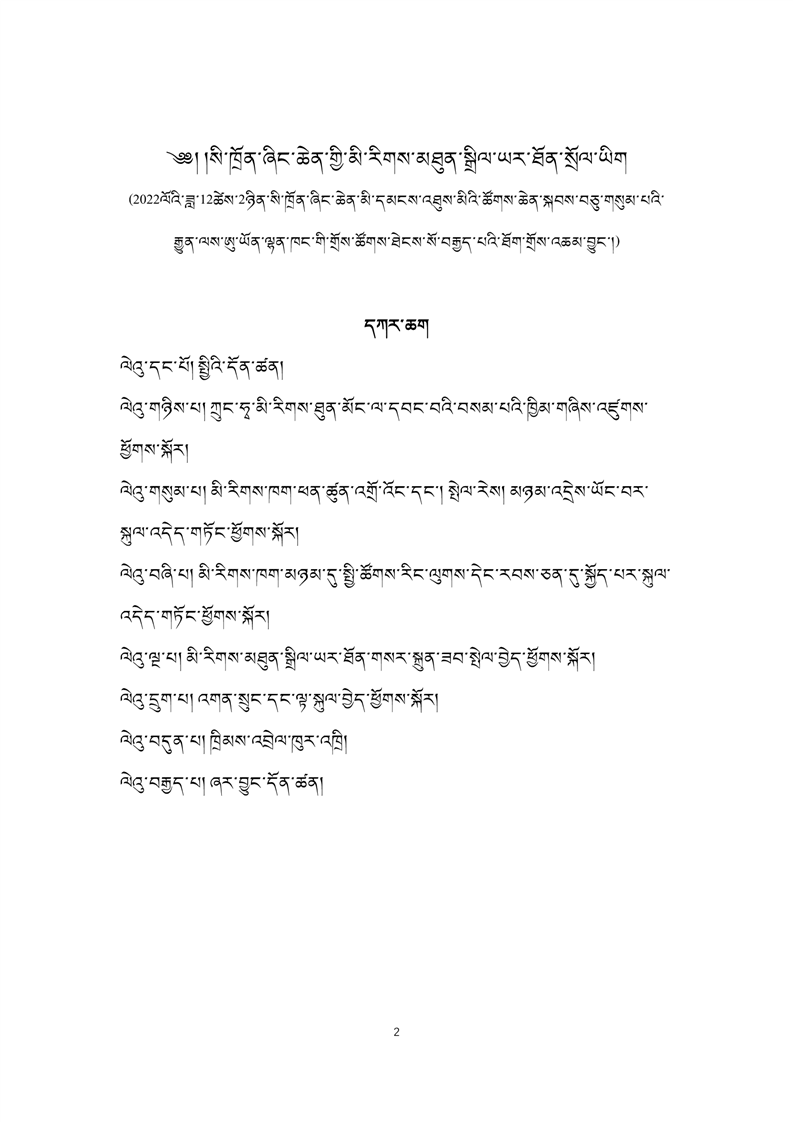 ༄༅། །སི་ཁྲོན་ཞིང་ཆེན་གྱི་མི་རིགས་མཐུན་སྒྲིལ་ཡར་ཐོན་སྲོལ་ཡིག
(2022ལོའི་ཟླ་12ཚེས་2ཉིན་སི་ཁྲོན་ཞིང་ཆེན་མི་དམངས་འཐུས་མིའི་ཚོགས་ཆེན་སྐབས་བཅུ་གསུམ་པའི་
རྒྱུན་ལས་ཨུ་ཡོན་ལྷན་ཁང་གི་གྲོས་ཚོགས་ཐེངས་སོ་བརྒྱད་པའི་ཐོག་གྲོས་འཆམ་བྱུང་།)
དཀར་ཆག
ལེའུ་དང་པོ། སྤྱིའི་དོན་ཚན།
ལེའུ་གཉིས་པ། ཀྲུང་ཧྭ་མི་རིགས་ཐུན་མོང་ལ་དབང་བའི་བསམ་པའི་ཁྱིམ་གཞིས་འཛུགས་
ཕྱོགས་སྐོར།
ལེའུ་གསུམ་པ། མི་རིགས་ཁག་ཕན་ཚུན་འགྲོ་འོང་དང་། སྤེལ་རེས། མཉམ་འདྲེས་ཡོང་བར་
སྐུལ་འདེད་གཏོང་ཕྱོགས་སྐོར།
ལེའུ་བཞི་པ། མི་རིགས་ཁག་མཉམ་དུ་སྤྱི་ཚོགས་རིང་ལུགས་དེང་རབས་ཅན་དུ་སྐྱོད་པར་སྐུལ་
འདེད་གཏོང་ཕྱོགས་སྐོར།
ལེའུ་ལྔ་པ། མི་རིགས་མཐུན་སྒྲིལ་ཡར་ཐོན་གསར་སྐྲུན་ཟབ་སྤེལ་བྱེད་ཕྱོགས་སྐོར།
ལེའུ་དྲུག་པ། འགན་སྲུང་དང་ལྟ་སྐུལ་བྱེད་ཕྱོགས་སྐོར།
ལེའུ་བདུན་པ། ཁྲིམས་འབྲེལ་ཁུར་འཁྲི།
ལེའུ་བརྒྱད་པ། ཞར་བྱུང་དོན་ཚན།
2